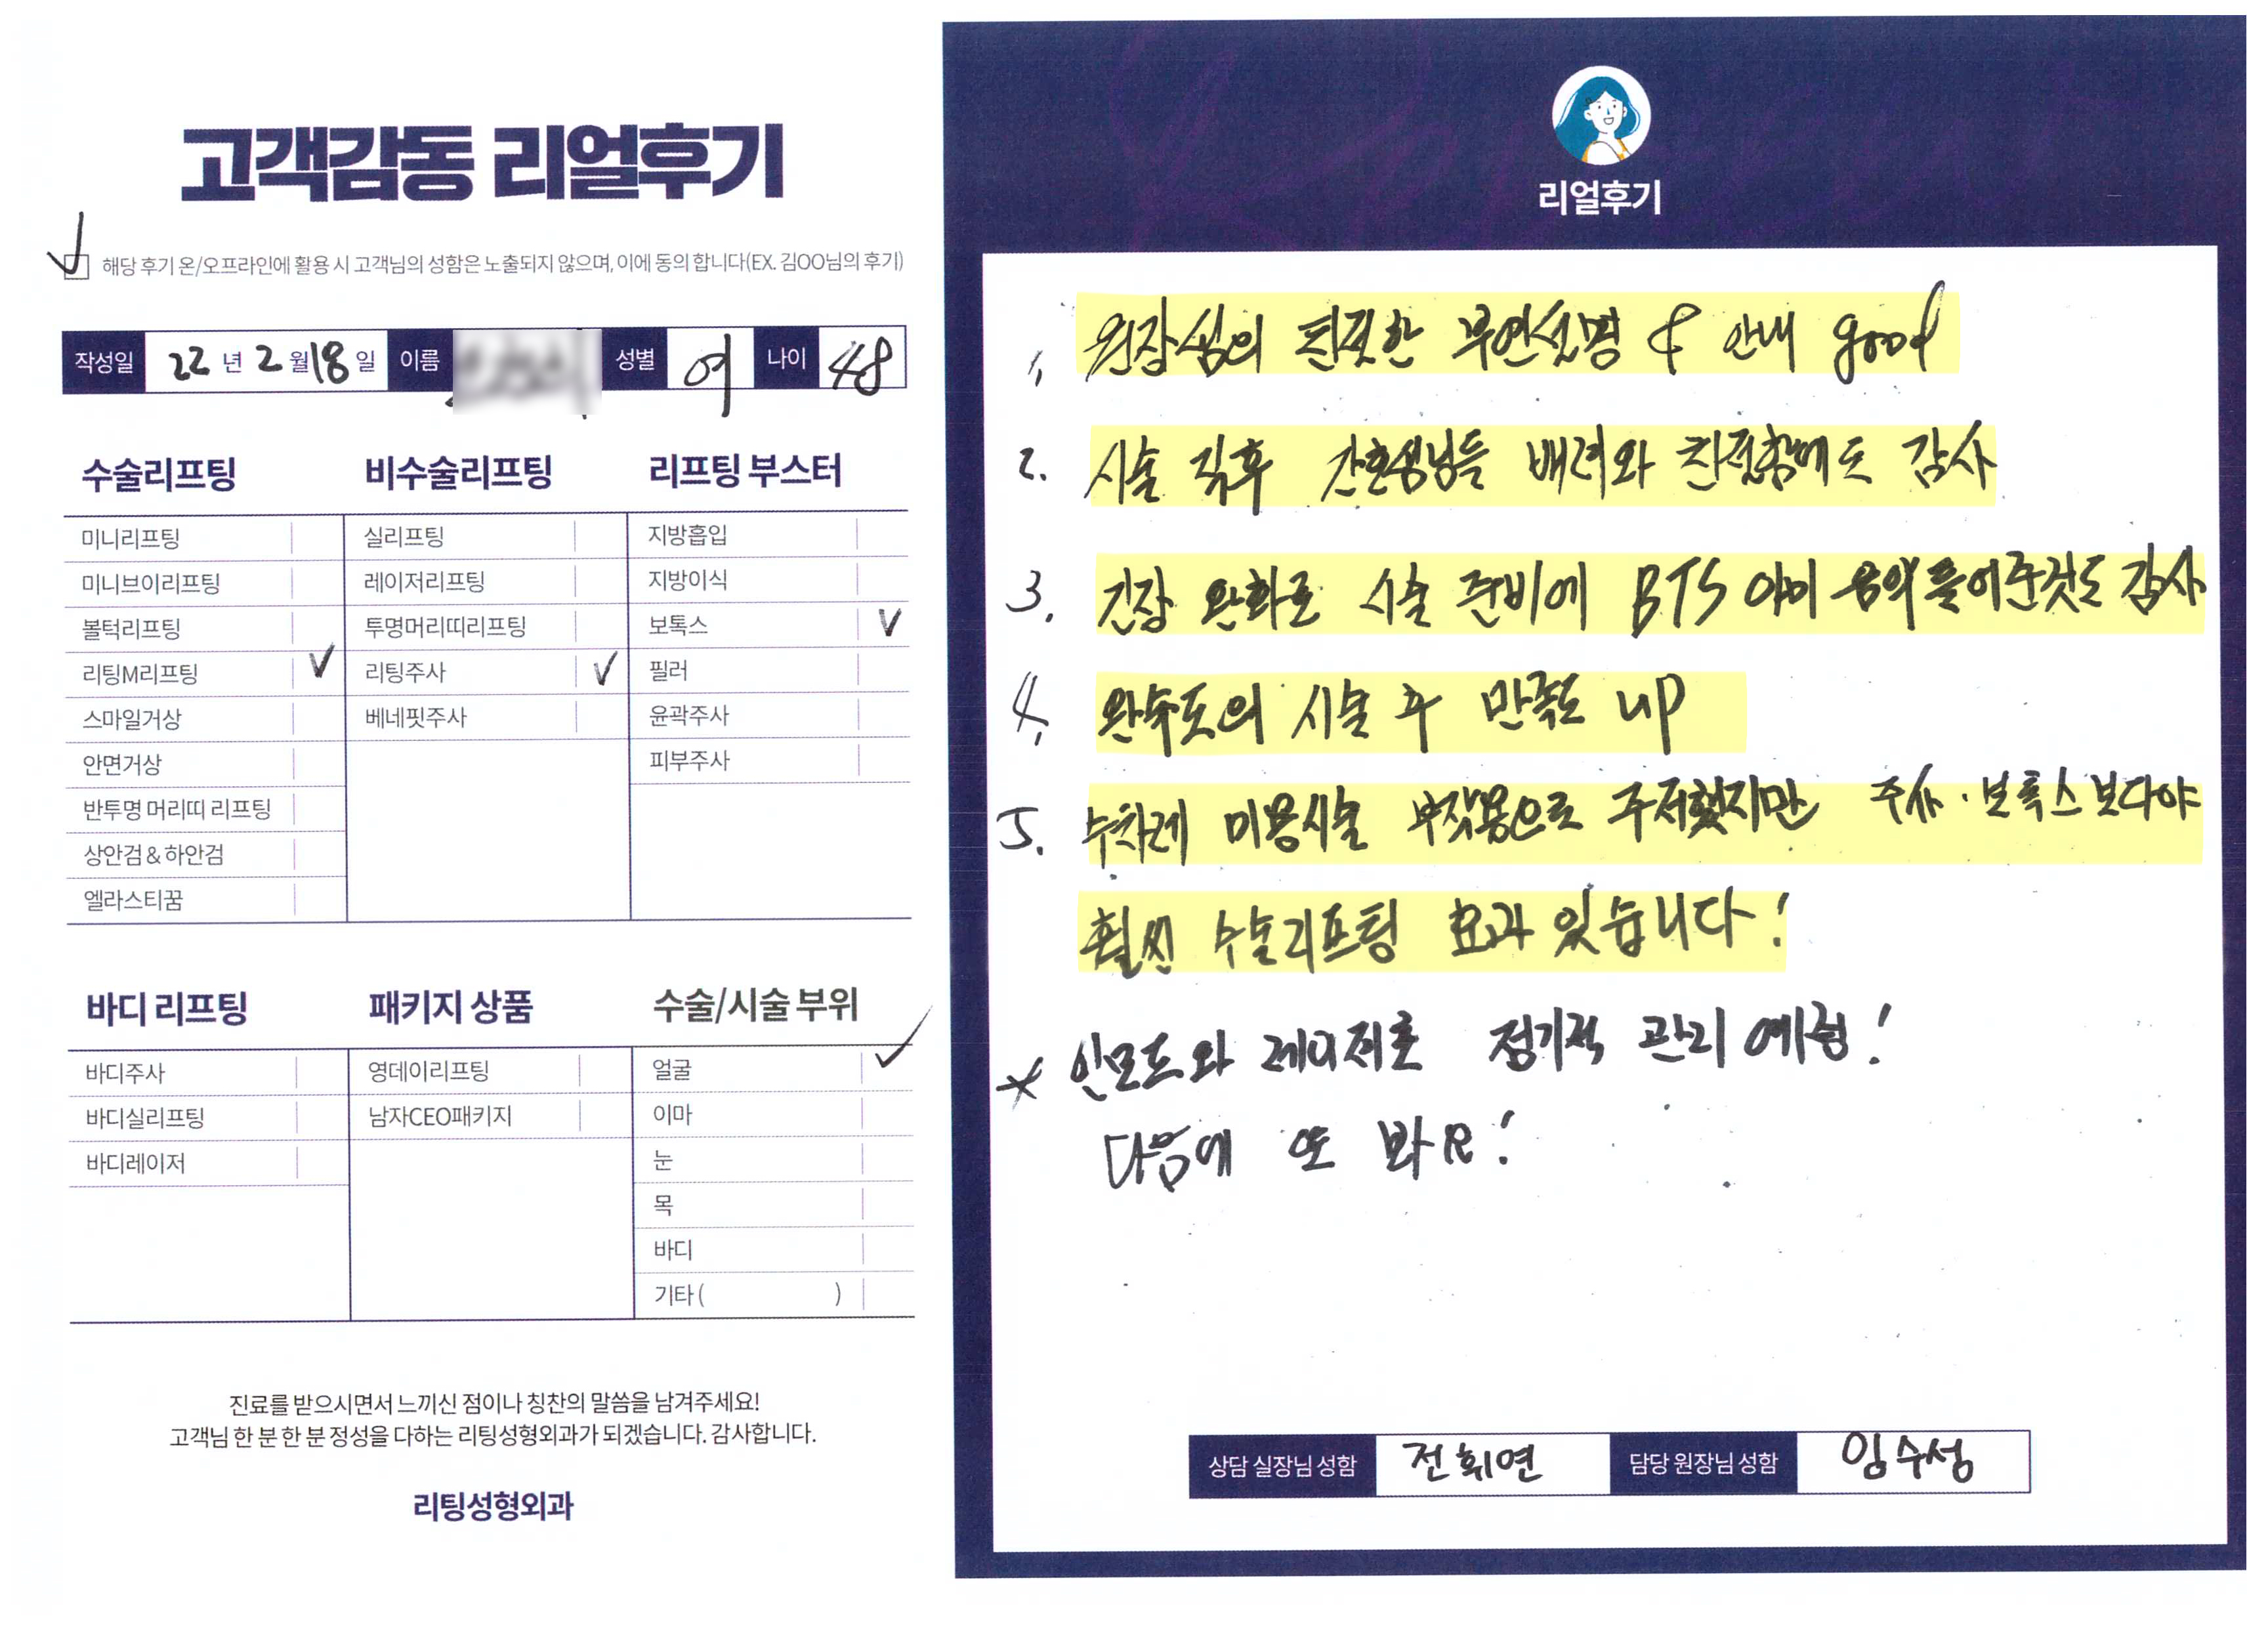 고객감동 리얼후기
✓ 해당 후기 온/오프라인에 활용 시 고객님의 성함은 노출되지 않으며, 이에 동의 합니다(EX. 김OO님의 후기)
작성일 22 년 2 월 18 일 이름 성별 여 나이 48
수술리프팅 비수술리프팅 리프팅 부스터
미니리프팅 실리프팅 지방흡입
미니브이리프팅 레이저리프팅 지방이식
볼턱리프팅 투명머리띠리프팅 보톡스 ✓
리팅M리프팅 ✓ 리팅주사 ✓ 필러
스마일거상 베네핏주사 윤곽주사
안면거상 피부주사
반투명 머리띠 리프팅
상안검&하안검
엘라스티꿈
바디 리프팅 패키지 상품 수술/시술 부위
바디주사 영데이리프팅 얼굴 ✓
바디실리프팅 남자CEO패키지 이마
바디레이저 눈
목
바디
기타 ( )
진료를 받으시면서 느끼신 점이나 칭찬의 말씀을 남겨주세요!
고객님 한 분 한 분 정성을 다하는 리팅성형외과가 되겠습니다. 감사합니다.
리팅성형외과
리얼후기
1. 원장님의 부연설명 & 안내 good
2. 시술 직후 간호샘님들 배려와 친절함에도 감사
3. 긴장 완화로 시술 준비에 BTS 음악 틀어준것도 감사
4. 시술 후 만족도 up
5. 수차례 미용시술 부작용으로 주저했지만 주사·보톡스보다야
훨씬 수술리프팅 효과 있습니다!
* 인모드와 레이저로 정기적 관리 예정!
다음에 또 봐R!
상담 실장님 성함 전휘연 담당 원장님 성함 임수성